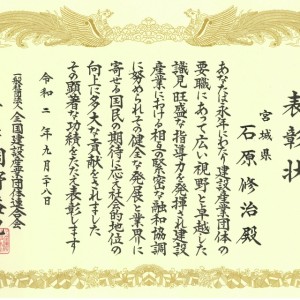 表彰状
宮城県
石原修治殿
あなたは永年にわたり建設産業団体の
要職にあって広い視野と卓越した
識見旺盛な指導力を発揮され建設
産業における相互の緊密な融和協調
に努められその健全な発展と業界に
寄せる国民の期待に応え社会的地位の
向上に多大な貢献をされました
その顕著な功績をたたえ表彰します
令和二年九月二十八日
一般社団法人全国建設産業団体連合会